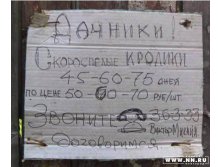 ДАЧНИКИ!
СКОРОСПЕЛЫЕ КРОЛИКИ
45-60-75 ДНЕЙ
ПО ЦЕНЕ 50-60-70 РУБ/ШТ.
ЗВОНИТЕ 3-63-33
ВИКТОР
ДОГОВОРИМСЯ.
WWW.NN.RU